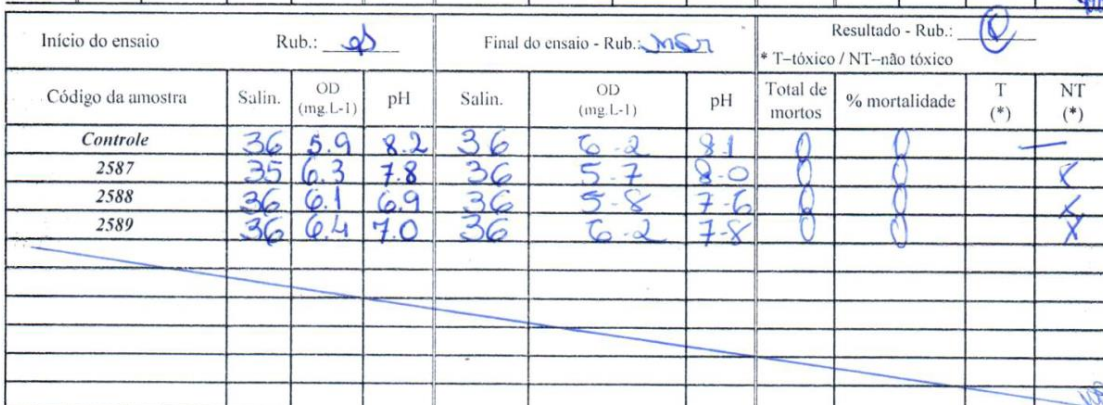 Início do ensaio Rub.: Final do ensaio - Rub.: Resultado - Rub.:
* T–tóxico / NT–não tóxico
Código da amostra Salin. OD (mg.L-1) pH Salin. OD (mg.L-1) pH Total de mortos % mortalidade T (*) NT (*)
Controle 36 5.9 8.2 36 6.2 8.1 0 0 —
2587 35 6.3 7.8 36 5.7 8.0 0 0 X
2588 36 6.1 6.9 36 5.8 7.6 0 0 X
2589 36 6.4 7.0 36 6.2 7.8 0 0 X